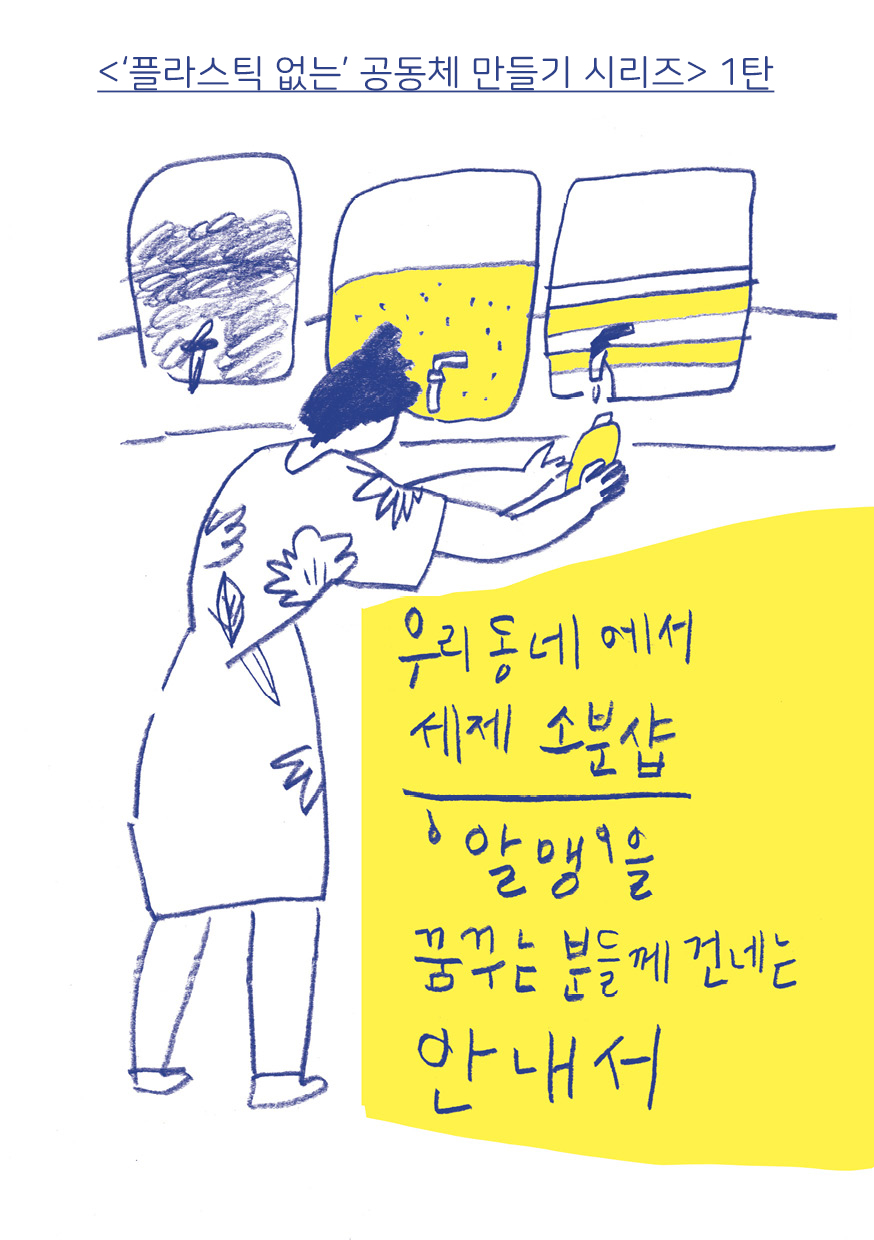 <‘플라스틱 없는’ 공동체 만들기 시리즈> 1탄
우리동네에서
세제 소분샵
‘알맹’을
꿈꾸는 분들께 건네는
안내서